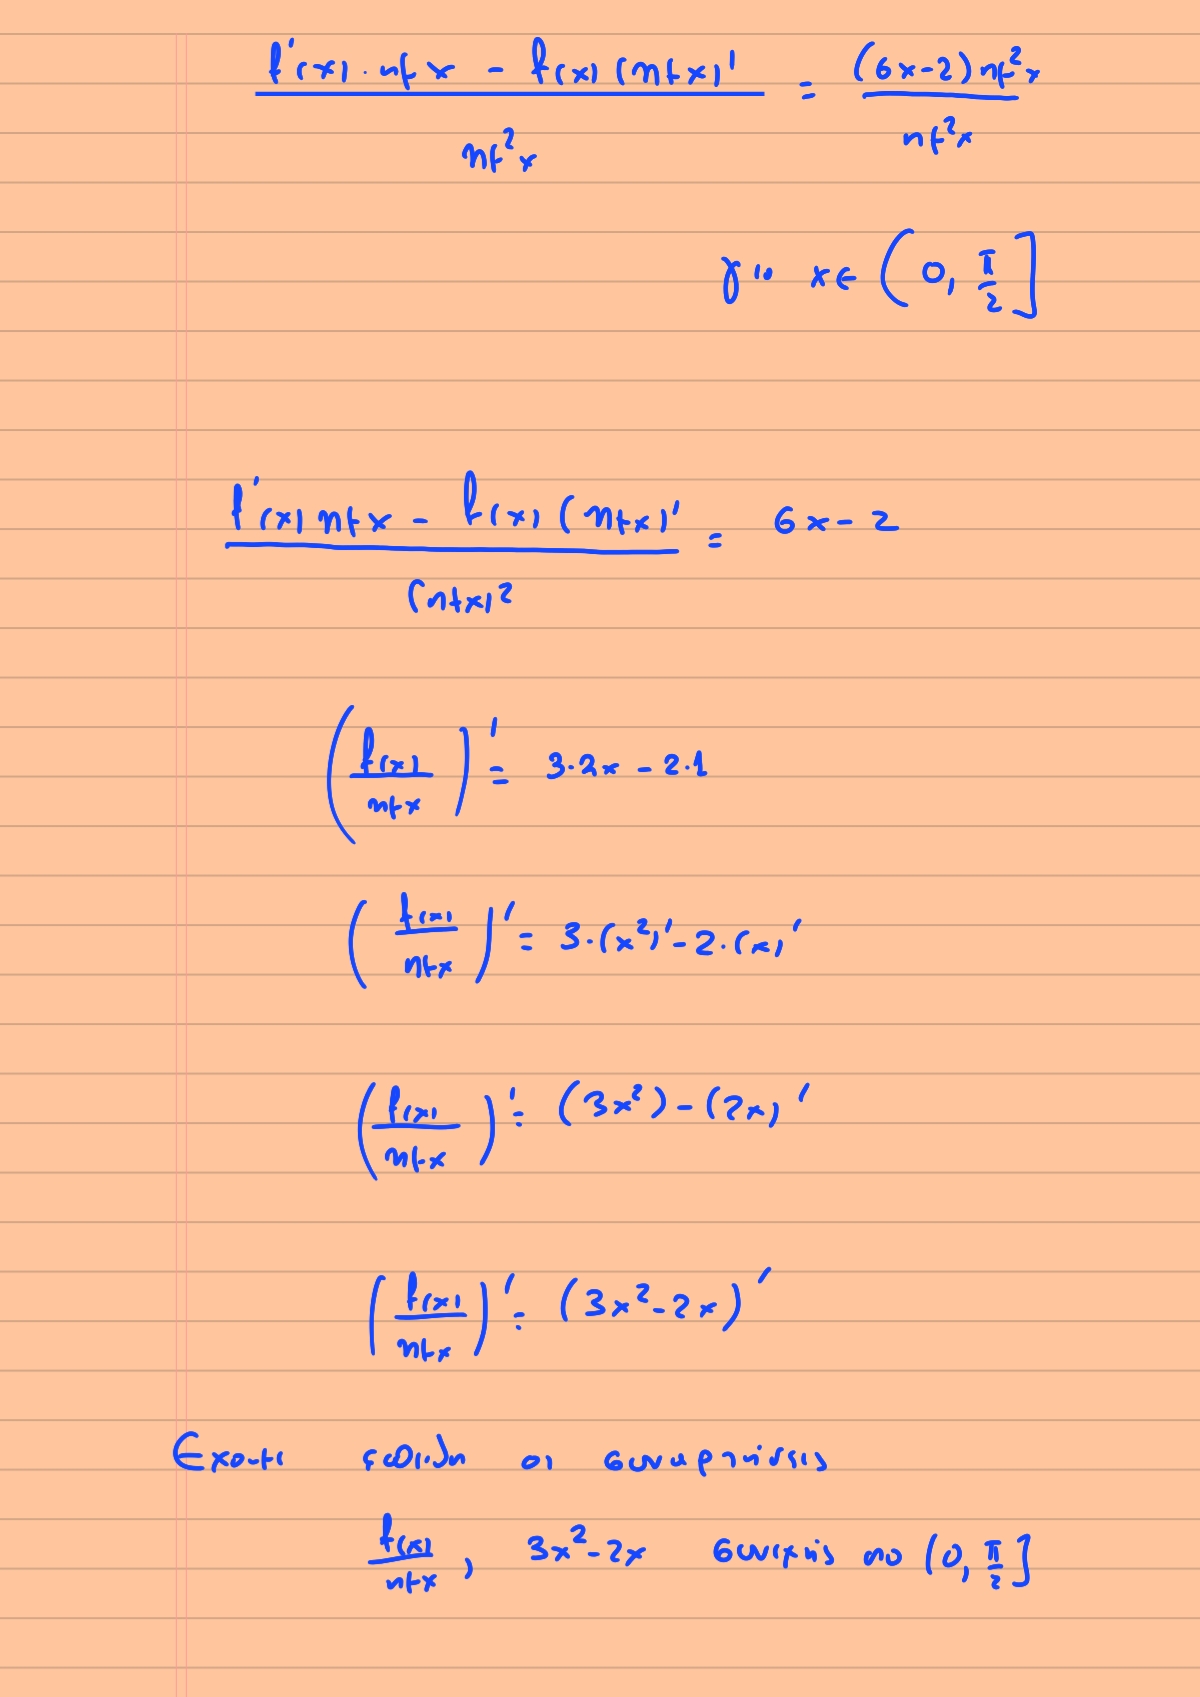 f'(x) · ημx - f(x) (ημx)' / ημ²x = (6x-2) ημ²x / ημ²x
για x ∈ (0, π/2]
f'(x) ημx - f(x) (ημx)' / (ημx)² = 6x - 2
(f(x)/ημx)' = 3·2x - 2·1
(f(x)/ημx)' = 3·(x²)' - 2·(x)'
(f(x)/ημx)' = (3x²) - (2x)'
(f(x)/ημx)' = (3x² - 2x)'
Έχουμε οι συναρτήσεις
f(x)/ημx , 3x² - 2x συνεχείς στο (0, π/2]